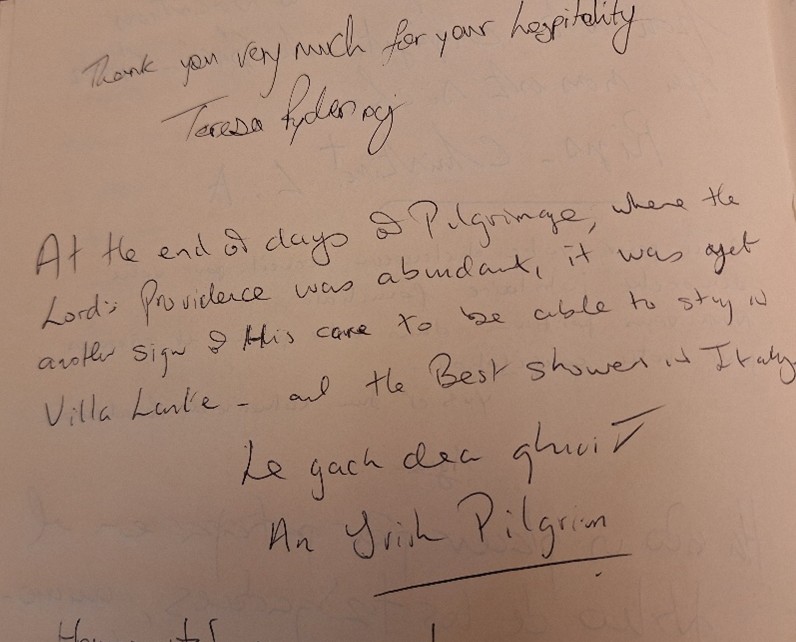 Thank you very much for your hospitality
Teresa
At the end of days of Pilgrimage, where the
Lord's Providence was abundant, it was yet
another sign of His care to be able to stay in
Villa Lante - and the Best shower in Italy.
Le gach dea ghuí
An Irish Pilgrim